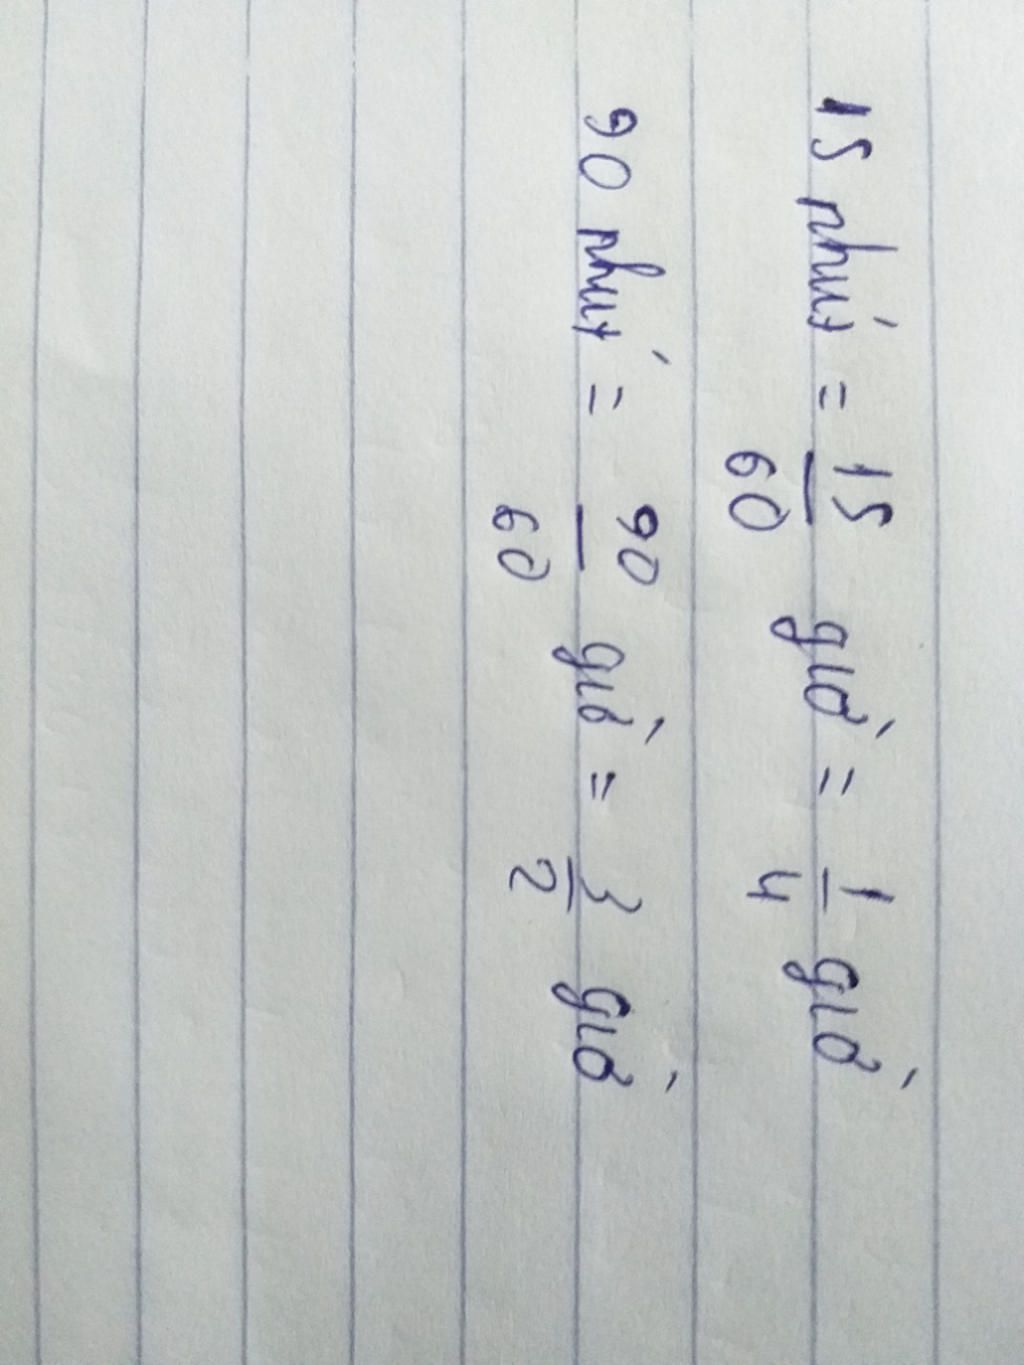 15 phút = 15/60 giờ = 1/4 giờ
90 phút = 90/60 giờ = 3/2 giờ